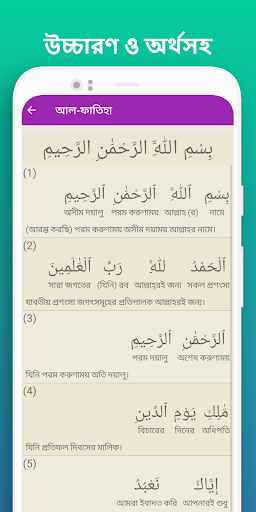 উচ্চারণ ও অর্থসহ
আল-ফাতিহা
بِسْمِ اللَّهِ الرَّحْمَٰنِ الرَّحِيمِ
(1)
بِسْمِ ٱللَّهِ ٱلرَّحْمَٰنِ ٱلرَّحِيمِ
অসীম দয়ালু পরম করুণাময় আল্লাহ (র) নামে
(আরম্ভ করছি) পরম করুণাময় অসীম দয়াময় আল্লাহর নামে।
(2)
ٱلْحَمْدُ لِلَّهِ رَبِّ ٱلْعَٰلَمِينَ
সারা জগতের (যিনি) রব আল্লাহরই জন্য সকল প্রশংসা
যাবতীয় প্রশংসা জগৎসমূহের প্রতিপালক আল্লাহরই জন্য।
(3)
ٱلرَّحْمَٰنِ ٱلرَّحِيمِ
পরম দয়ালু অশেষ করুণাময়
যিনি পরম করুণাময় অতি দয়ালু।
(4)
مَٰلِكِ يَوْمِ ٱلدِّينِ
বিচারের দিনের অধিপতি
যিনি প্রতিফল দিবসের মালিক।
(5)
إِيَّاكَ نَعْبُدُ
আমরা ইবাদত করি আপনারই শুধু